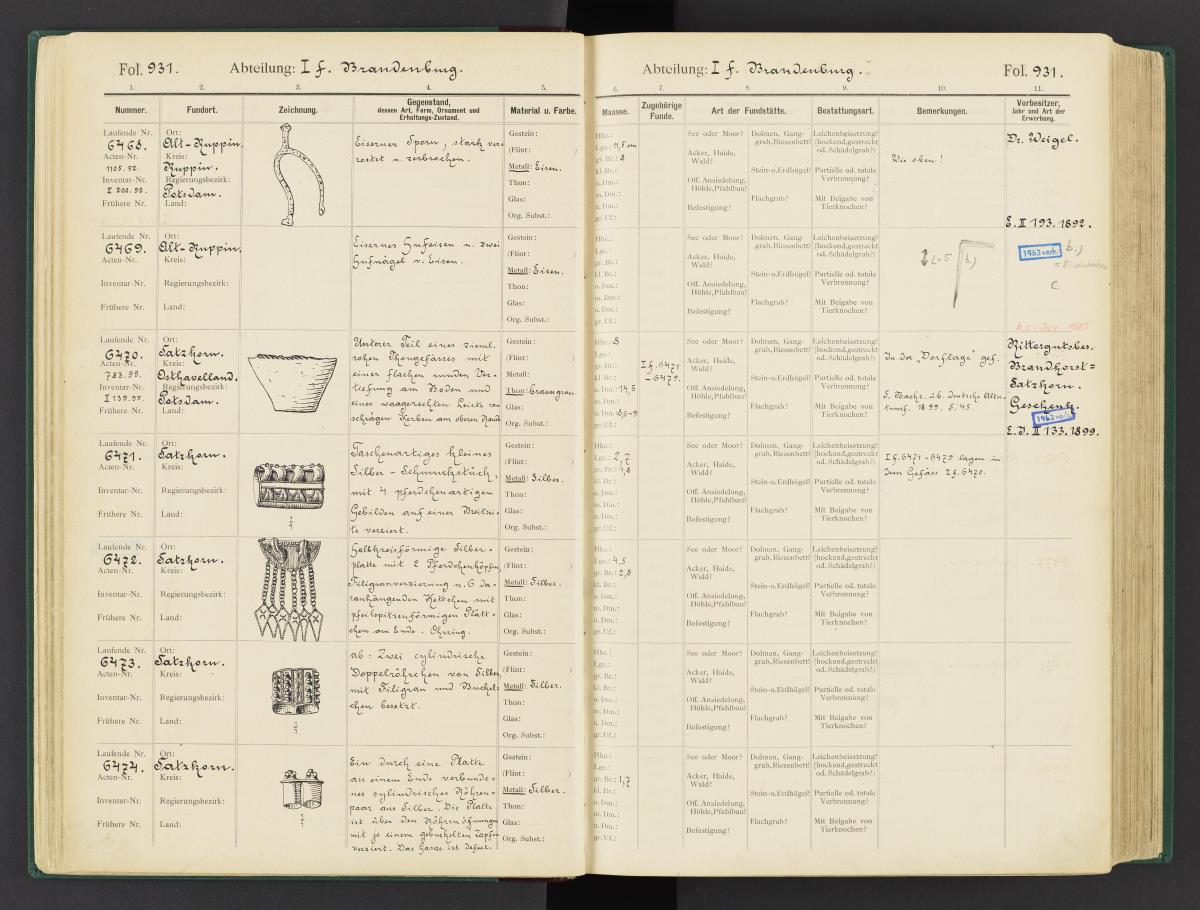 Fol. 931.
Abteilung: I f. Brandenburg.
1.
2.
3.
4.
5.
Nummer.
Fundort.
Zeichnung.
Gegenstand,
dessen Art, Form, Ornament und
Erhaltungs-Zustand.
Material u. Farbe.
Laufende Nr.
6468.
Acten-Nr.
1105. 92.
Inventar-Nr.
I 200. 92.
Frühere Nr.
Ort:
Alt-Ruppin.
Kreis:
Ruppin.
Regierungsbezirk:
Potsdam.
Land:
Eiserner Sporn, stark ver-
rostet u. zerbrochen.
Gestein:
(Flint: )
Metall: Eisen.
Thon:
Glas:
Org. Subst.:
Laufende Nr.
6469.
Acten-Nr.
Inventar-Nr.
Frühere Nr.
Ort:
Alt-Ruppin.
Kreis:
Regierungsbezirk:
Land:
Eisernes Hufeisen u. zwei
Hufnägel v. Eisen.
Gestein:
(Flint: )
Metall: Eisen.
Thon:
Glas:
Org. Subst.:
Laufende Nr.
6470.
Acten-Nr.
783. 99.
Inventar-Nr.
I 139. 99.
Frühere Nr.
Ort:
Satzkorn.
Kreis:
Osthavelland.
Regierungsbezirk:
Potsdam.
Land:
Unterer Teil eines zieml.
rohen Thongefässes mit
einer flachen runden Ver-
tiefung am Boden und
einer waagerechten Leiste von
schrägen Kerben am oberen Rande
Gestein:
(Flint:
Metall:
Thon: braungrau.
Glas:
Org. Subst.:
Laufende Nr.
6471.
Acten-Nr.
Inventar-Nr.
Frühere Nr.
Ort:
Satzkorn.
Kreis:
Regierungsbezirk:
Land:
1/1
Taschenartiges kleines
Silber-Schmuckstück,
mit 4 pferdchenartigen
Gebilden auf einer Breitsei-
te verziert.
Gestein:
(Flint: )
Metall: Silber.
Thon:
Glas:
Org. Subst.:
Laufende Nr.
6472.
Acten-Nr.
Inventar-Nr.
Frühere Nr.
Ort:
Satzkorn.
Kreis:
Regierungsbezirk:
Land:
Halbkreisförmige Silber-
platte mit 2 Pferdchenköpfen,
Filigranverzierung u. 6 da-
ranhängenden Kettchen mit
pfeilspitzenförmigen Plätt-
chen am Ende. Ohrring.
Gestein:
(Flint: )
Metall: Silber.
Thon:
Glas:
Org. Subst.:
Laufende Nr.
6473.
Acten-Nr.
Inventar-Nr.
Frühere Nr.
Ort:
Satzkorn.
Kreis:
Regierungsbezirk:
Land:
ab: Zwei cylindrische
Doppelröhrchen von Silber,
mit Filigran und Buckel-
chen besetzt.
Gestein:
(Flint: )
Metall: Silber.
Thon:
Glas:
Org. Subst.:
Laufende Nr.
6474.
Acten-Nr.
Inventar-Nr.
Frühere Nr.
Ort:
Satzkorn.
Kreis:
Regierungsbezirk:
Land:
1/1
Ein durch eine Platte
an einem Ende verbunde-
nes cylindrisches Röhren-
paar aus Silber. Die Platte
ist über den Röhrenöffnungen
mit je einem gebuckelten Zapfen
verziert. Das Ganze ist defect.
Gestein:
(Flint: )
Metall: Silber.
Thon:
Glas:
Org. Subst.:
Abteilung: I f. Brandenburg.
Fol. 931.
6.
7.
8.
9.
10.
11.
Maasse.
Zugehörige
Funde.
Art der Fundstätte.
Bestattungsart.
Bemerkungen.
Vorbesitzer,
Jahr und Art der
Erwerbung.
Hhe.:
Lge.: 11,5 cm
gr. Br.: 8
kl. Br.:
gr. Uf.:
See oder Moor?
Acker, Haide,
Wald?
Off. Ansiedelung,
Höhle, Pfahlbau?
Befestigung?
Dolmen, Gang-
grab, Riesenbett?
Stein- o. Erdhügel?
Flachgrab?
Leichenbeisetzung?
(hockend, gestreckt
od. Schädelgrab?)
Partielle od. totale
Verbrennung?
Mit Beigabe von
Tierknochen?
Wie oben!
Dr. Weigel.
E. II 193. 1892.
Hhe.:
Lge.:
gr. Br.:
kl. Br.:
gr. Uf.:
See oder Moor?
Acker, Haide,
Wald?
Off. Ansiedelung,
Höhle, Pfahlbau?
Befestigung?
Dolmen, Gang-
grab, Riesenbett?
Stein- o. Erdhügel?
Flachgrab?
Leichenbeisetzung?
(hockend, gestreckt
od. Schädelgrab?)
Partielle od. totale
Verbrennung?
Mit Beigabe von
Tierknochen?
b.)
1963 vorh.
b.)
c
Hhe.: 8
Lge.:
gr. Br.:
kl. Br.:
o. Dm.: 14,5
u. Dm.: 8,6-9
gr. Uf.:
I f. 6471
-6479.
See oder Moor?
Acker, Haide,
Wald?
Off. Ansiedelung,
Höhle, Pfahlbau?
Befestigung?
Dolmen, Gang-
grab, Riesenbett?
Stein- o. Erdhügel?
Flachgrab?
Leichenbeisetzung?
(hockend, gestreckt
od. Schädelgrab?)
Partielle od. totale
Verbrennung?
Mit Beigabe von
Tierknochen?
In der „Dorflage“ gef.
S. Nachr. üb. deutsche Alter-
tumsf. 1899. S. 45.
Rittergutsbes.
Brandhorst=
Satzkorn.
Geschenk.
1963 vorh.
E. J. II 133. 1899.
Hhe.:
Lge.: 2,7
gr. Br.: 1,8
kl. Br.:
gr. Uf.:
See oder Moor?
Acker, Haide,
Wald?
Off. Ansiedelung,
Höhle, Pfahlbau?
Befestigung?
Dolmen, Gang-
grab, Riesenbett?
Stein- o. Erdhügel?
Flachgrab?
Leichenbeisetzung?
(hockend, gestreckt
od. Schädelgrab?)
Partielle od. totale
Verbrennung?
Mit Beigabe von
Tierknochen?
I f. 6471-6479 lagen in
dem Gefäss I f. 6470.
Hhe.:
Lge.: 4,5
gr. Br.: 2,8
kl. Br.:
gr. Uf.:
See oder Moor?
Acker, Haide,
Wald?
Off. Ansiedelung,
Höhle, Pfahlbau?
Befestigung?
Dolmen, Gang-
grab, Riesenbett?
Stein- o. Erdhügel?
Flachgrab?
Leichenbeisetzung?
(hockend, gestreckt
od. Schädelgrab?)
Partielle od. totale
Verbrennung?
Mit Beigabe von
Tierknochen?
Hhe.:
Lge.:
gr. Br.:
kl. Br.:
gr. Uf.:
See oder Moor?
Acker, Haide,
Wald?
Off. Ansiedelung,
Höhle, Pfahlbau?
Befestigung?
Dolmen, Gang-
grab, Riesenbett?
Stein- o. Erdhügel?
Flachgrab?
Leichenbeisetzung?
(hockend, gestreckt
od. Schädelgrab?)
Partielle od. totale
Verbrennung?
Mit Beigabe von
Tierknochen?
Hhe.:
Lge.:
gr. Br.: 1,7
kl. Br.:
gr. Uf.:
See oder Moor?
Acker, Haide,
Wald?
Off. Ansiedelung,
Höhle, Pfahlbau?
Befestigung?
Dolmen, Gang-
grab, Riesenbett?
Stein- o. Erdhügel?
Flachgrab?
Leichenbeisetzung?
(hockend, gestreckt
od. Schädelgrab?)
Partielle od. totale
Verbrennung?
Mit Beigabe von
Tierknochen?